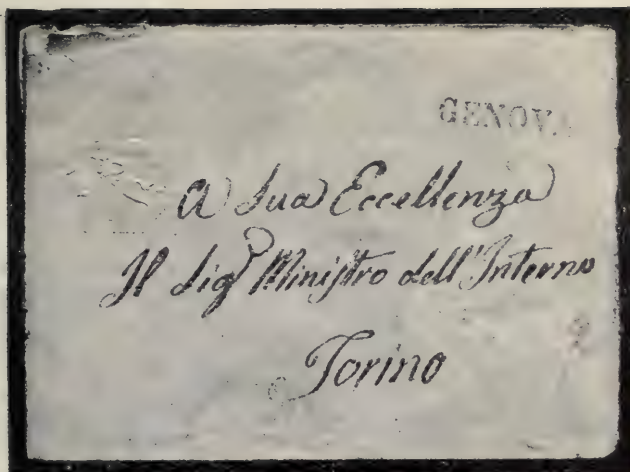 GENOVA
A Sua Eccellenza
Il Sigr Ministro dell'Interno
Torino